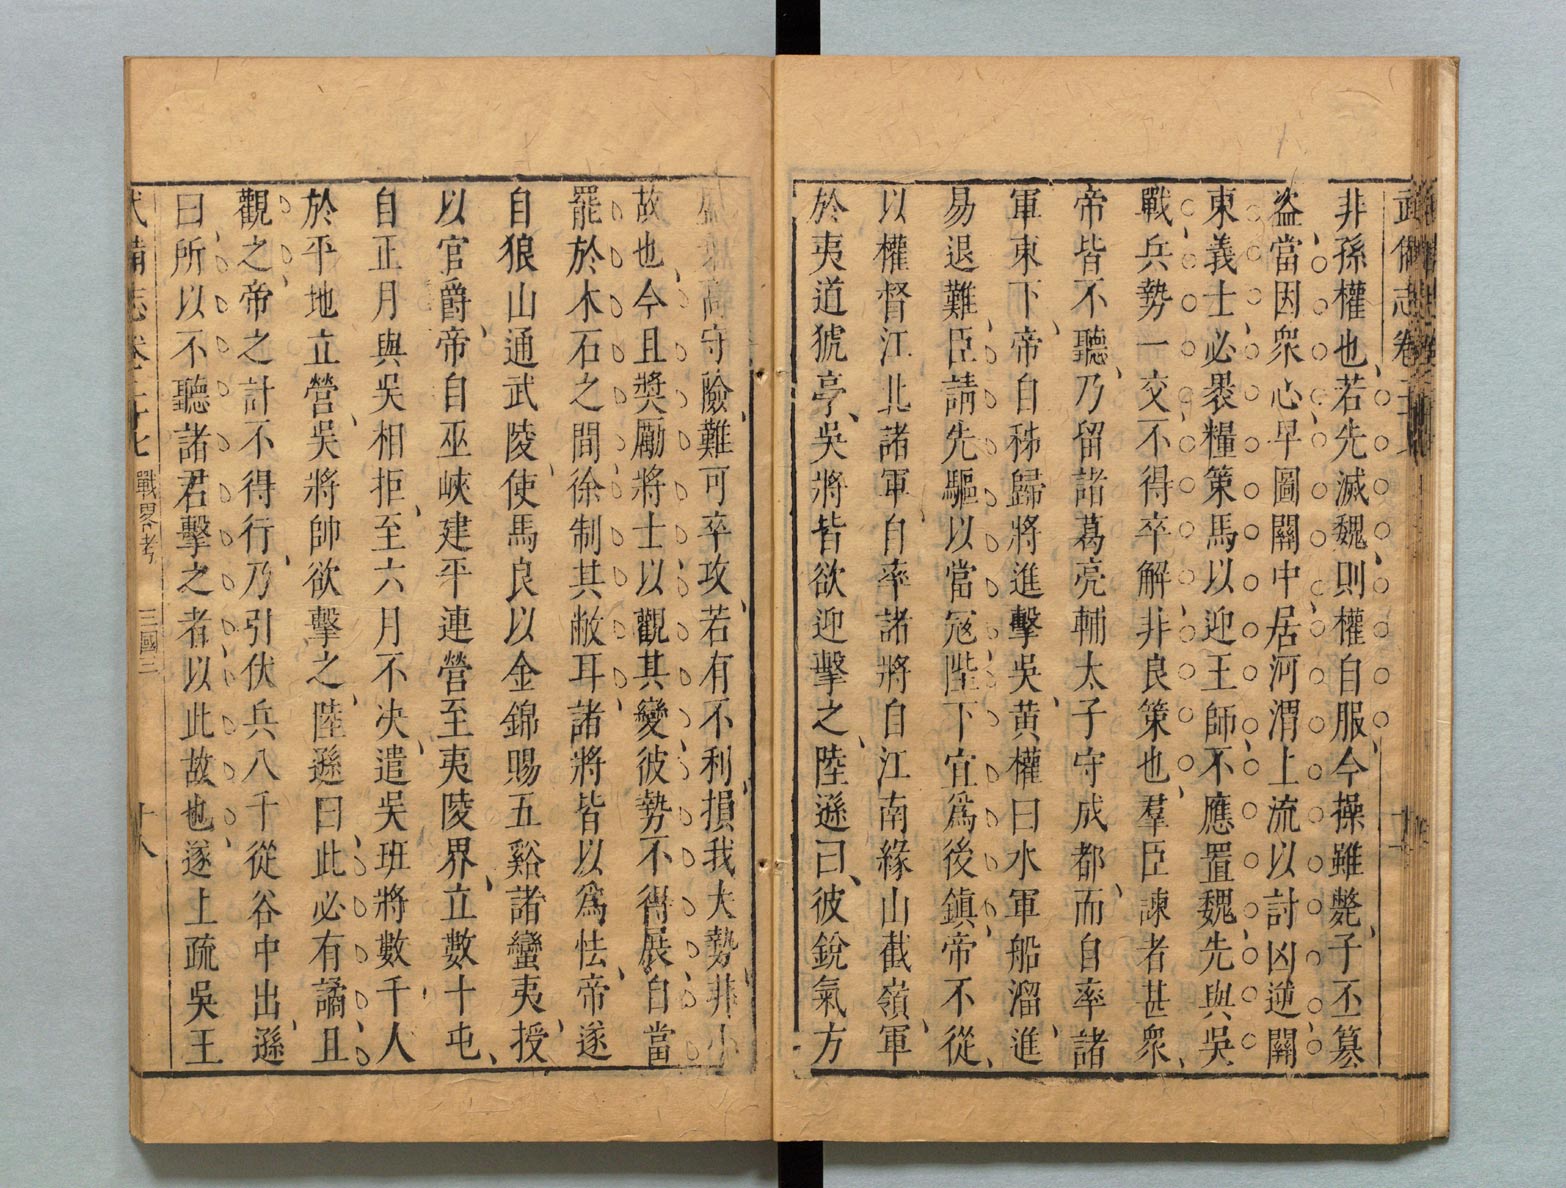 武備志卷二十
非孫權也若先滅魏則權自服今操雖斃子丕篡
盜當因衆心早圖關中居河渭上流以討凶逆關
東義士必褁糧策馬以迎王師不應置魏先與吳
戰兵勢一交不得卒解非良策也羣臣諫者甚衆
帝皆不聽乃留諸葛亮輔太子守成都而自率諸
軍東下帝自秭歸將進擊吳黄權曰水軍船溜進
易退難臣請先驅以當冦陛下宜爲後鎮帝不從
以權督江北諸軍自率諸將自江南緣山截嶺軍
於夷道猇亭吳將皆欲迎擊之陸遜曰彼銳氣方
盛乘高守險難可卒攻若有不利損我大勢非小
故也今且奬勵將士以觀其變彼勢不得展自當
罷於木石之間徐制其敝耳諸將皆以爲怯帝遂
自狼山通武陵使馬良以金錦賜五谿諸蠻夷授
以官爵帝自巫峽建平連營至夷陵界立數十屯
自正月與吳相拒至六月不决遣吳班將數千人
於平地立營吳將帥欲擊之陸遜曰此必有譎且
觀之帝之計不得行乃引伏兵八千從谷中出遜
曰所以不聽諸君擊之者以此故也遂上疏吳王
武備志卷二十七 戰畧考 三國三 十八